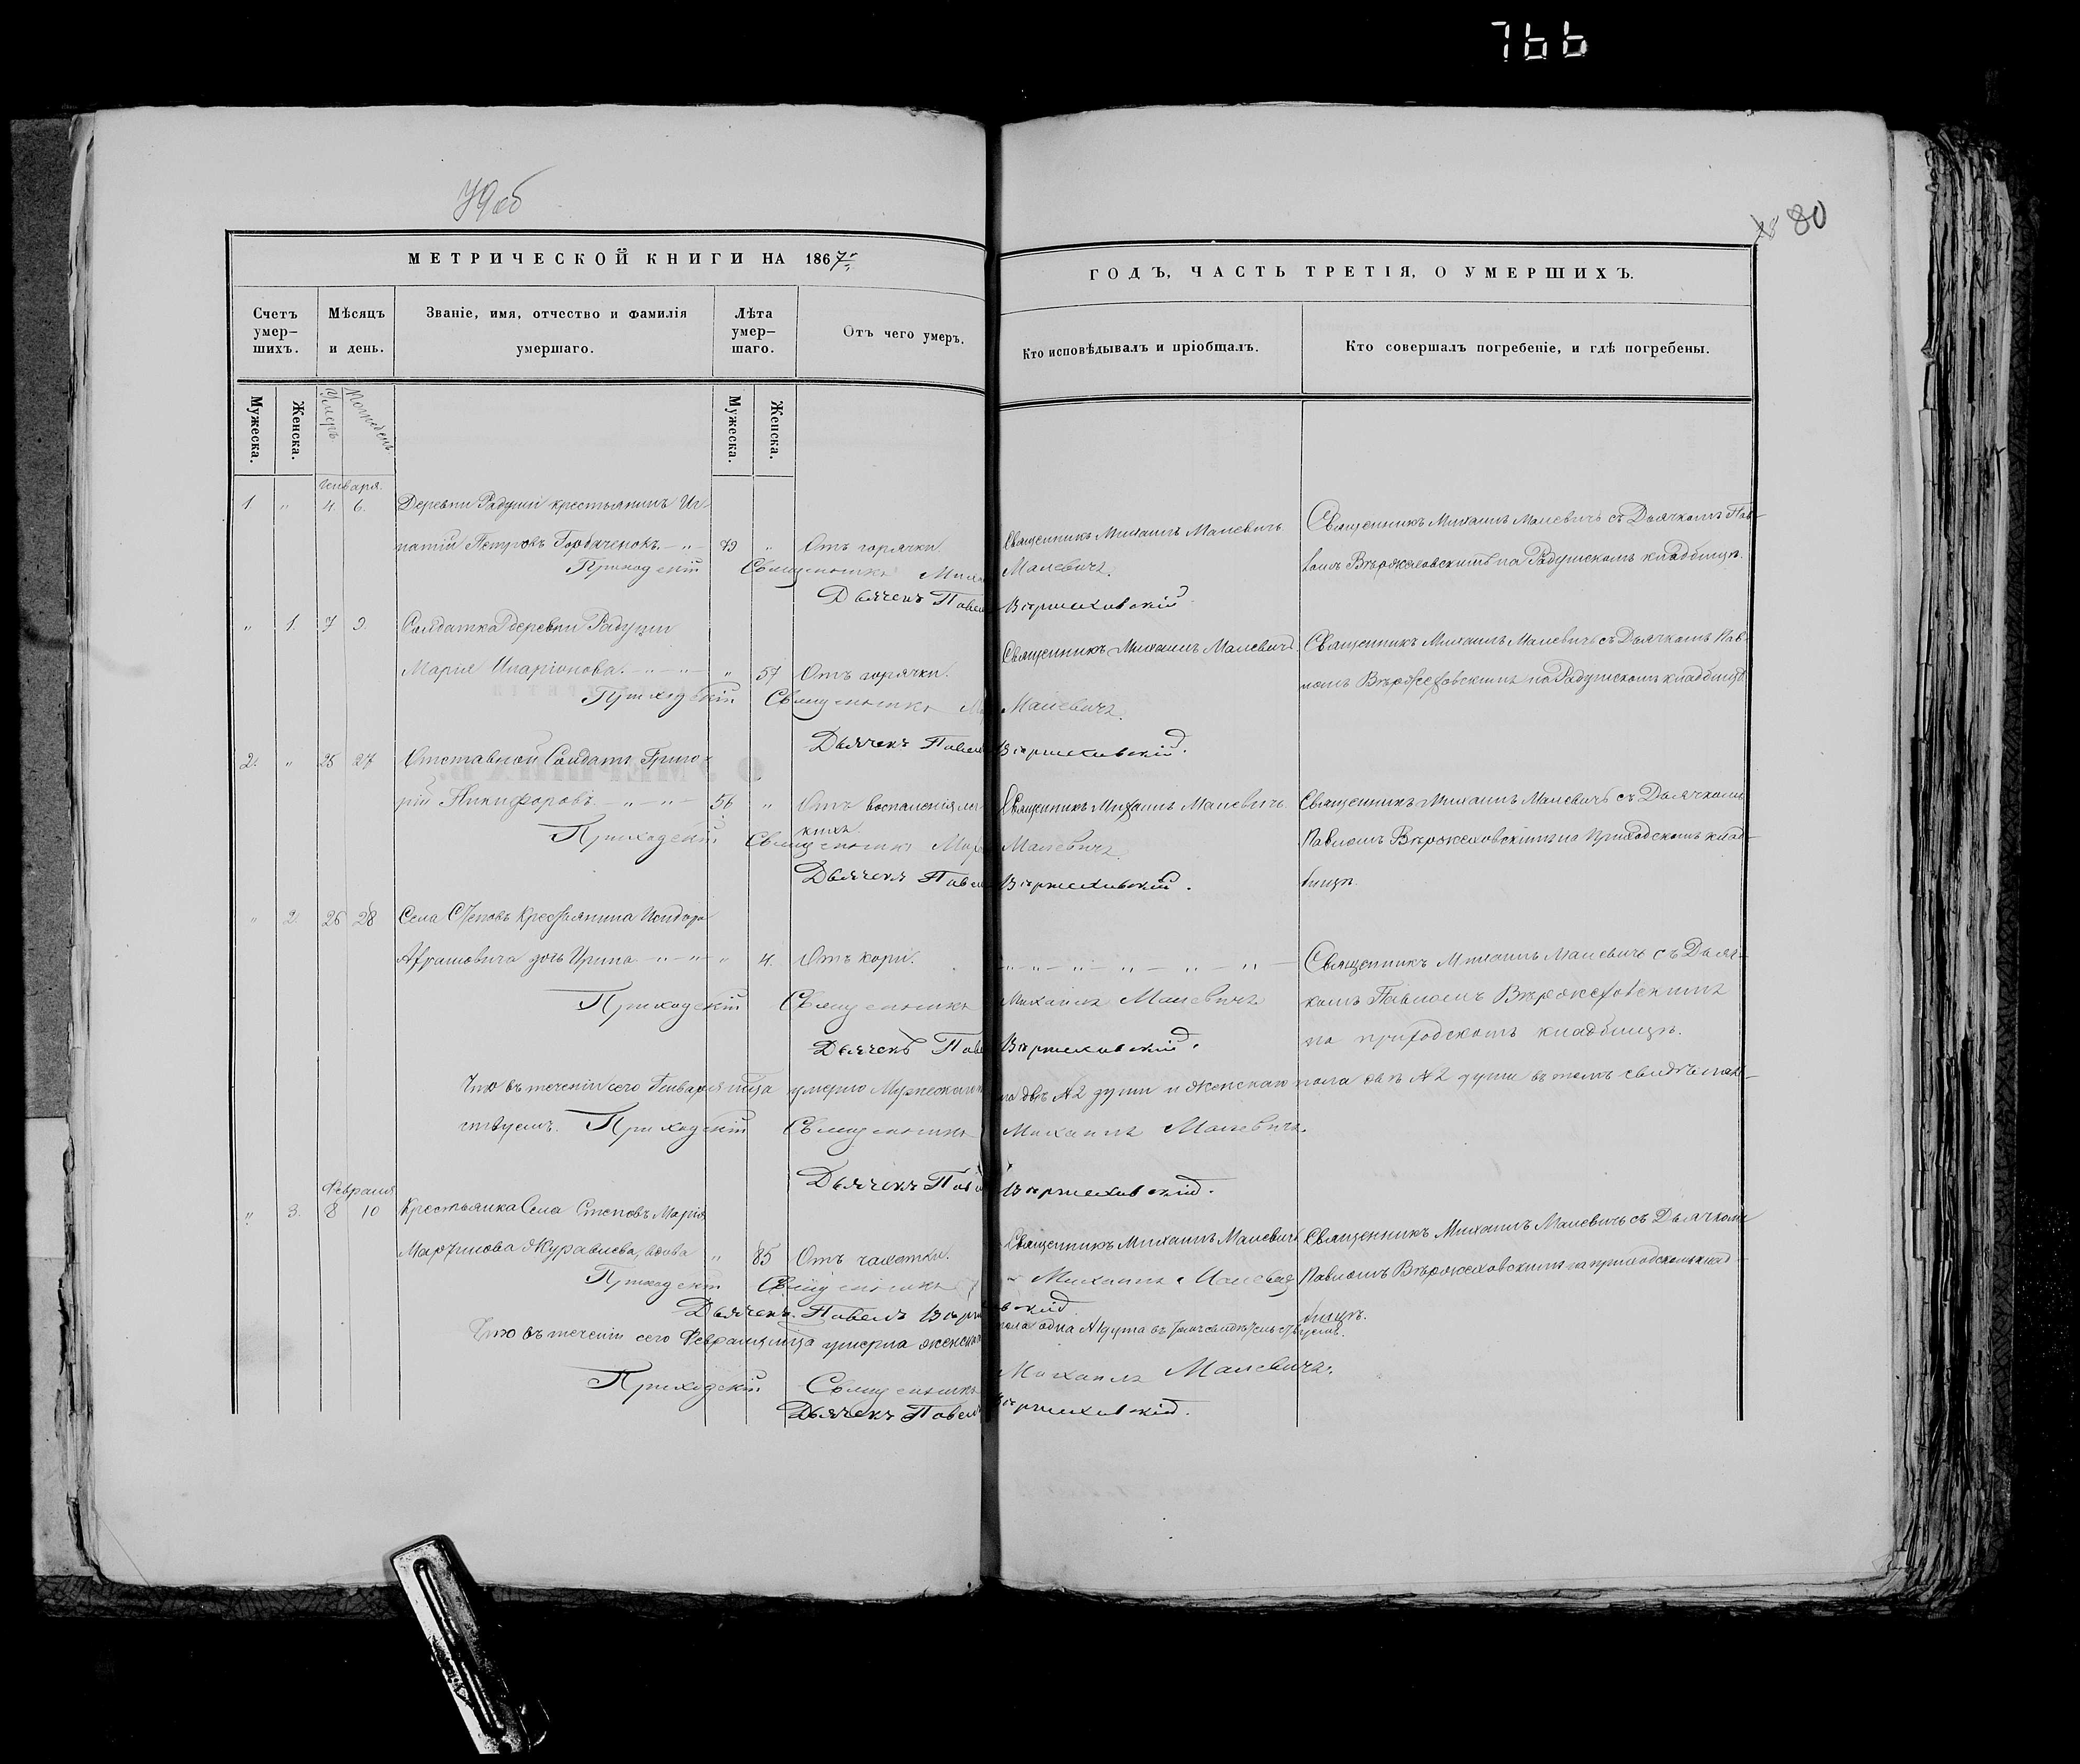 766
79об
78 80
МЕТРИЧЕСКОЙ КНИГИ НА 1867й
ГОДЪ, ЧАСТЬ ТРЕТІЯ, О УМЕРШИХЪ.
Счетъ умер–шихъ.
Мѣсяцъ и день.
Званіе, имя, отчество и фамилія умершаго.
Лѣта умер–шаго.
Отъ чего умеръ.
Кто исповѣдывалъ и пріобщалъ.
Кто совершалъ погребеніе, и гдѣ погребены.
Мужеска. Женска. Умеръ Погребенъ Мужеска. Женска.
Генваря
1 " 4. 6. Деревни Радуши крестьянинъ Иг-
натій Петровъ Горбаченокъ 79 " Отъ горячки. Священникъ Михаилъ Малевичъ. Священникъ Михаилъ Малевичъ съ Дьячкомъ Пав-
ломъ Вържеховскимъ на Радушскомъ кладбищѣ.
Приходскій Священникъ Малевичъ.
Дьячекъ Павелъ Вѣржеховскій
" 1. 7 9. Солдатка деревни Радуши
Марія Иларіонова. " 57 Отъ горячки. Священникъ Михаилъ Малевичъ. Священникъ Михаилъ Малевичъ съ Дьячкомъ Пав-
ломъ Вържеховскимъ на Радушскомъ кладбищѣ
Приходскій Священникъ Малевичъ.
Дьячекъ Павелъ Вѣржеховскій.
2. " 25 27 Отставной Солдатъ Григо-
рій Никифоровъ 56 " Отъ воспаленія лег-
кихъ. Священникъ Михаилъ Малевичъ. Священникъ Михаилъ Малевичъ съ Дьячкомъ
Павломъ Вържеховскимъ на Приходскомъ клад-
бищѣ.
Приходскій Священникъ Малевичъ.
Дьячекъ Павелъ Вѣржеховскій.
" 2. 26 28 Села Степовъ Крестьянина
дочь Ирина " 4. Отъ кори. Священникъ Михаилъ Малевичъ съ Дьяч-
комъ Павломъ Вържеховскимъ
на приходскомъ кладбищѣ.
Приходскій Священникъ Михаилъ Малевичъ
Дьячекъ Вѣржеховскій.
Что въ теченіи сего Генваря м-ца умерло Мужескаго двѣ № 2 души и женскаго пола двѣ № 2 души въ томъ свидѣтель-
ствуемъ. Приходскій Священникъ Михаилъ Малевичъ.
Дьячекъ Павелъ Вѣржеховскій.
Февраля
" 3. 8 10 Крестьянка Села Степовъ Марія
Мартинова Журавлева, вдова " 85 Отъ чахотки. Священникъ Михаилъ Малевичъ Священникъ Михаилъ Малевичъ съ Дьячкомъ
Павломъ Вържеховскимъ на приходскомъ клад-
бищѣ.
Приходскій Священникъ Михаилъ Малевичъ
Дьячекъ Павелъ Вѣржеховскій
Что въ теченіи сего Февраля м-ца умерла женскаго пола одна № 1 душа въ томъ свидѣтельствуемъ.
Приходскій Священникъ Михаилъ Малевичъ.
Дьячекъ Павелъ Вѣржеховскій.